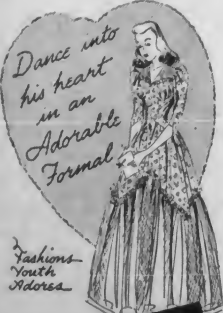 Dance into
his heart
in an
Adorable
Formal
Fashions
Youth
Adores